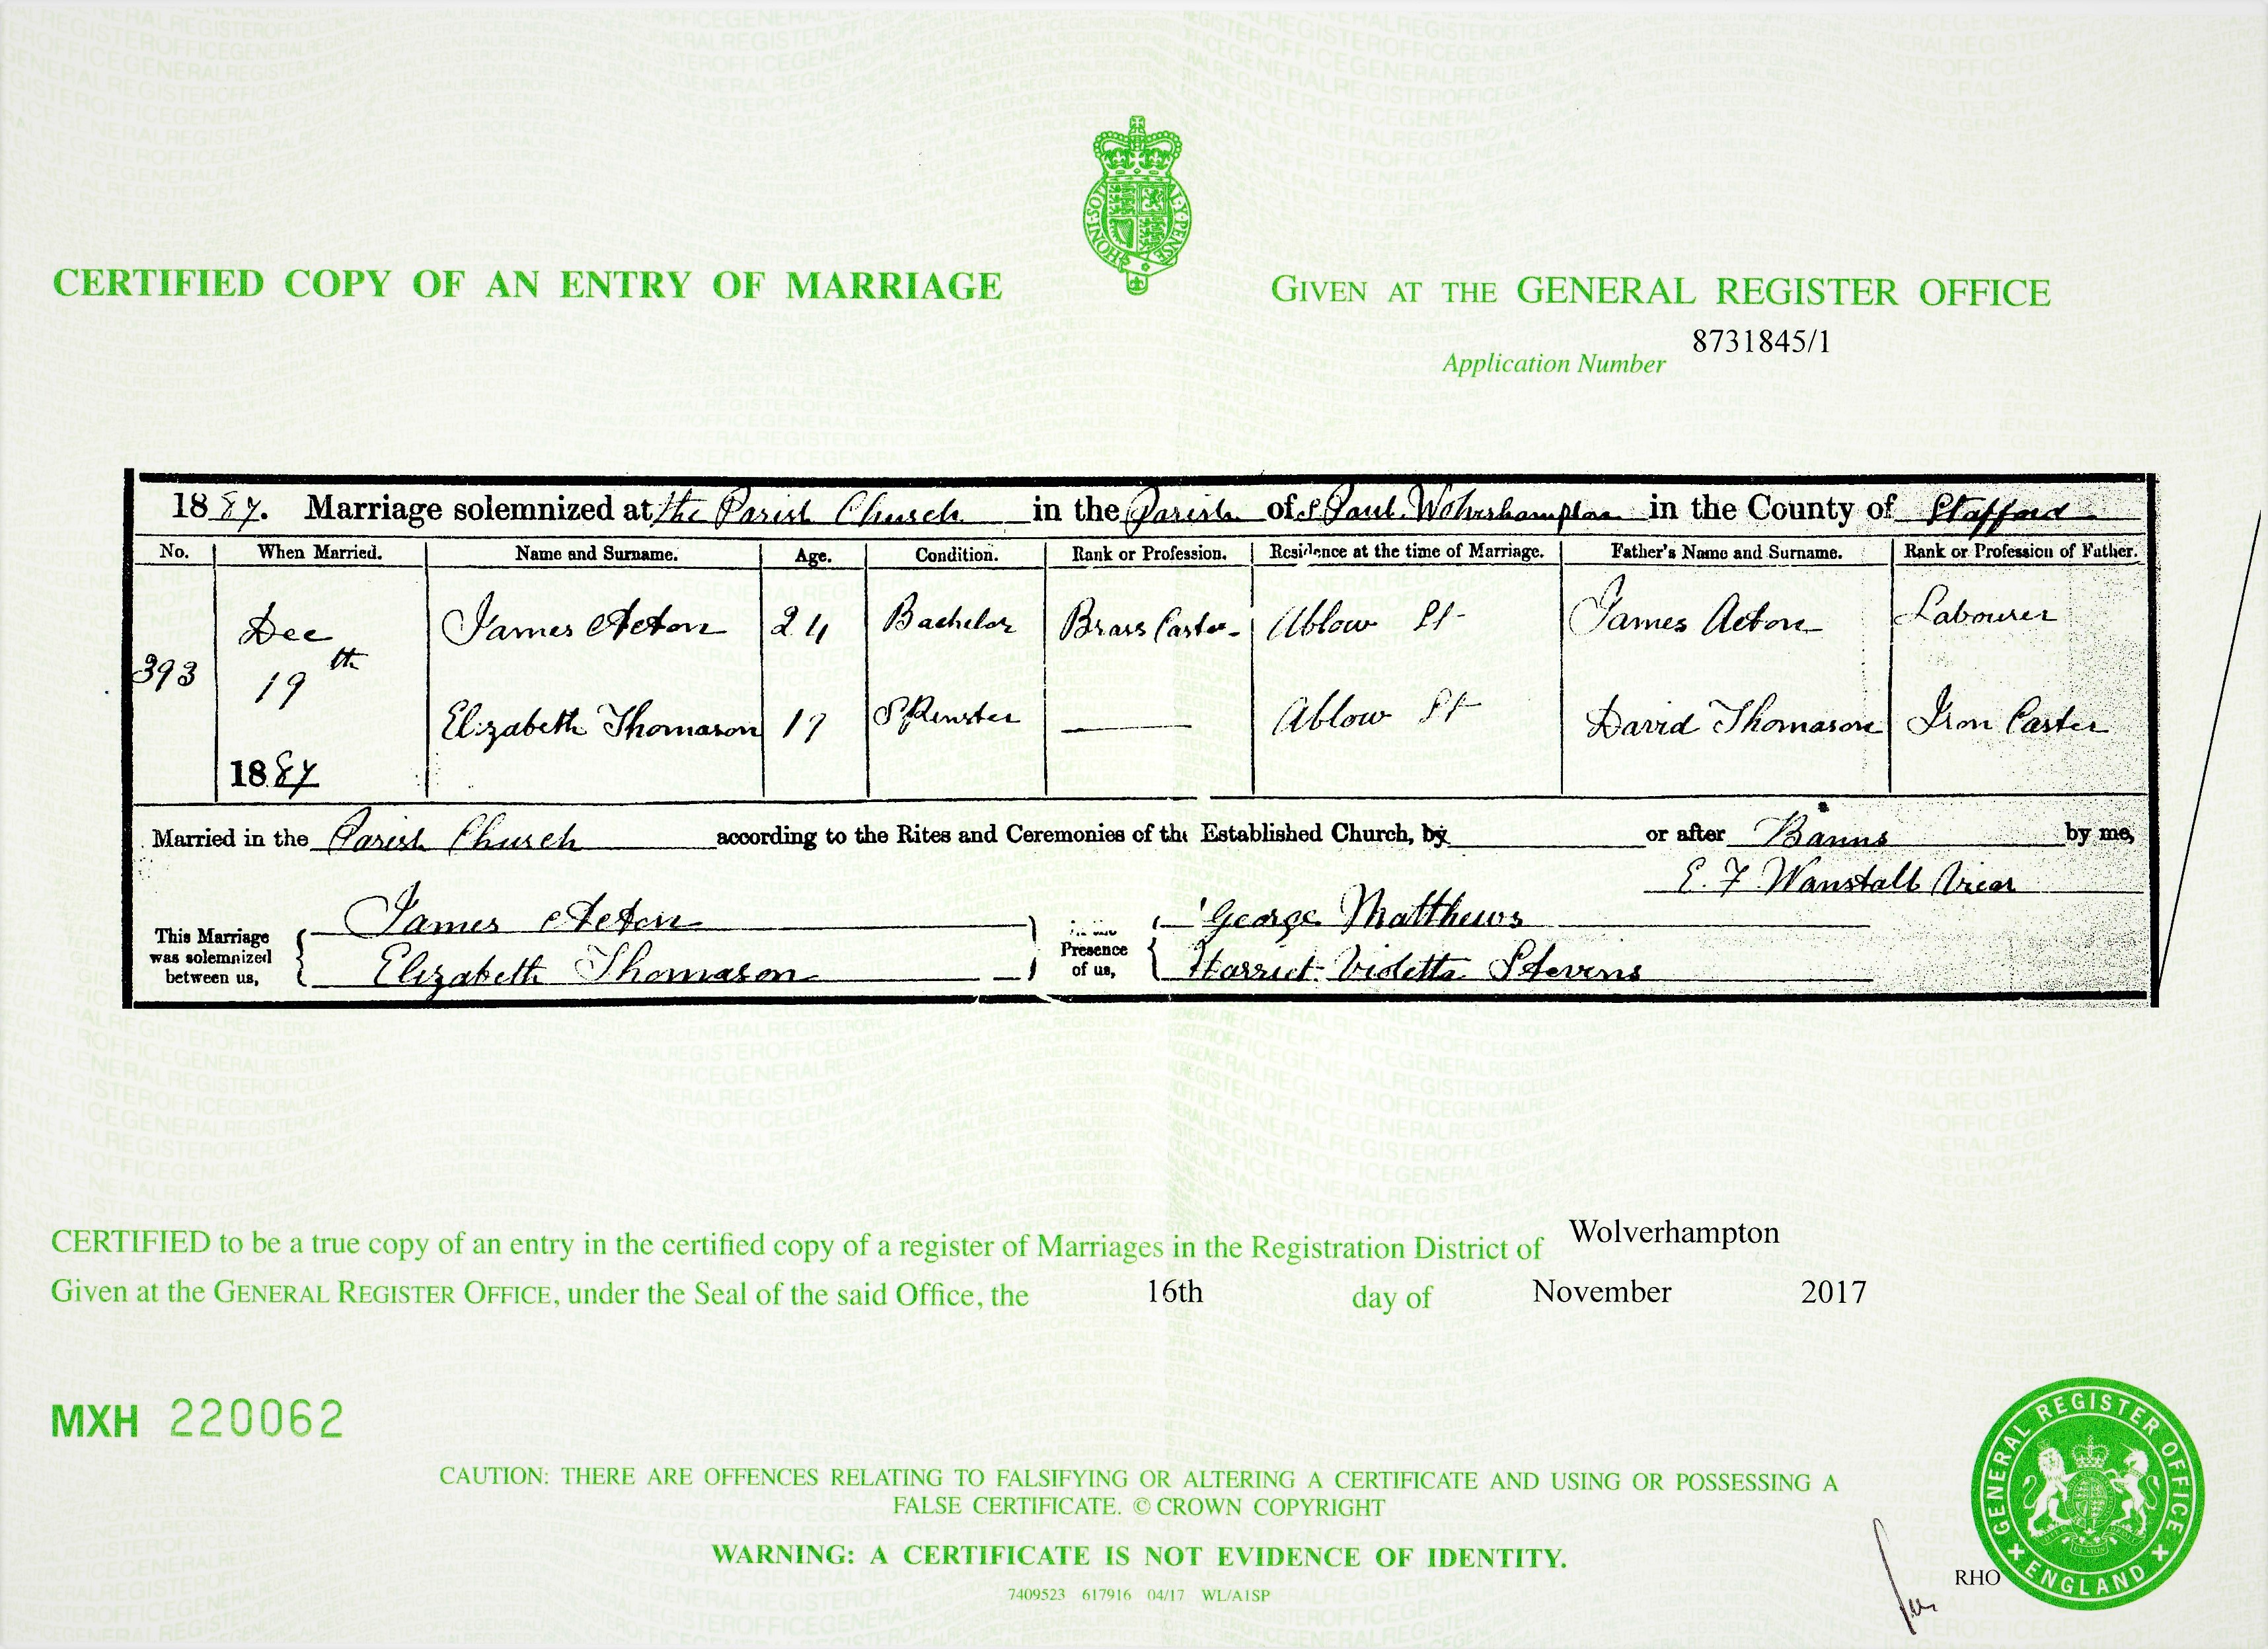 HONI·SOIT
AL·Y·PENSE
CERTIFIED COPY OF AN ENTRY OF MARRIAGE
GIVEN AT THE GENERAL REGISTER OFFICE
Application Number 8731845/1
1887. Marriage solemnized at the Parish Church in the Parish of S Paul Wolverhampton in the County of Stafford
No. When Married. Name and Surname. Age. Condition. Rank or Profession. Residence at the time of Marriage. Father's Name and Surname. Rank or Profession of Father.
393 Dec 19th 1887 James Acton 24 Bachelor Brass Caster Ablow St James Acton Labourer
Elizabeth Thomason 17 Spinster — Ablow St David Thomason Iron Caster
Married in the Parish Church according to the Rites and Ceremonies of the Established Church, by or after Banns by me,
E. F. Wanstall Vicar
This Marriage was solemnized between us, James Acton Elizabeth Thomason
Presence of us, George Matthews Harriet Violetta Stevens
CERTIFIED to be a true copy of an entry in the certified copy of a register of Marriages in the Registration District of Wolverhampton
Given at the GENERAL REGISTER OFFICE, under the Seal of the said Office, the 16th day of November 2017
MXH 220062
CAUTION: THERE ARE OFFENCES RELATING TO FALSIFYING OR ALTERING A CERTIFICATE AND USING OR POSSESSING A
FALSE CERTIFICATE. © CROWN COPYRIGHT
WARNING: A CERTIFICATE IS NOT EVIDENCE OF IDENTITY.
7409523 617916 04/17 WL/A1SP
RHO
GENERAL REGISTER OFFICE
ENGLAND